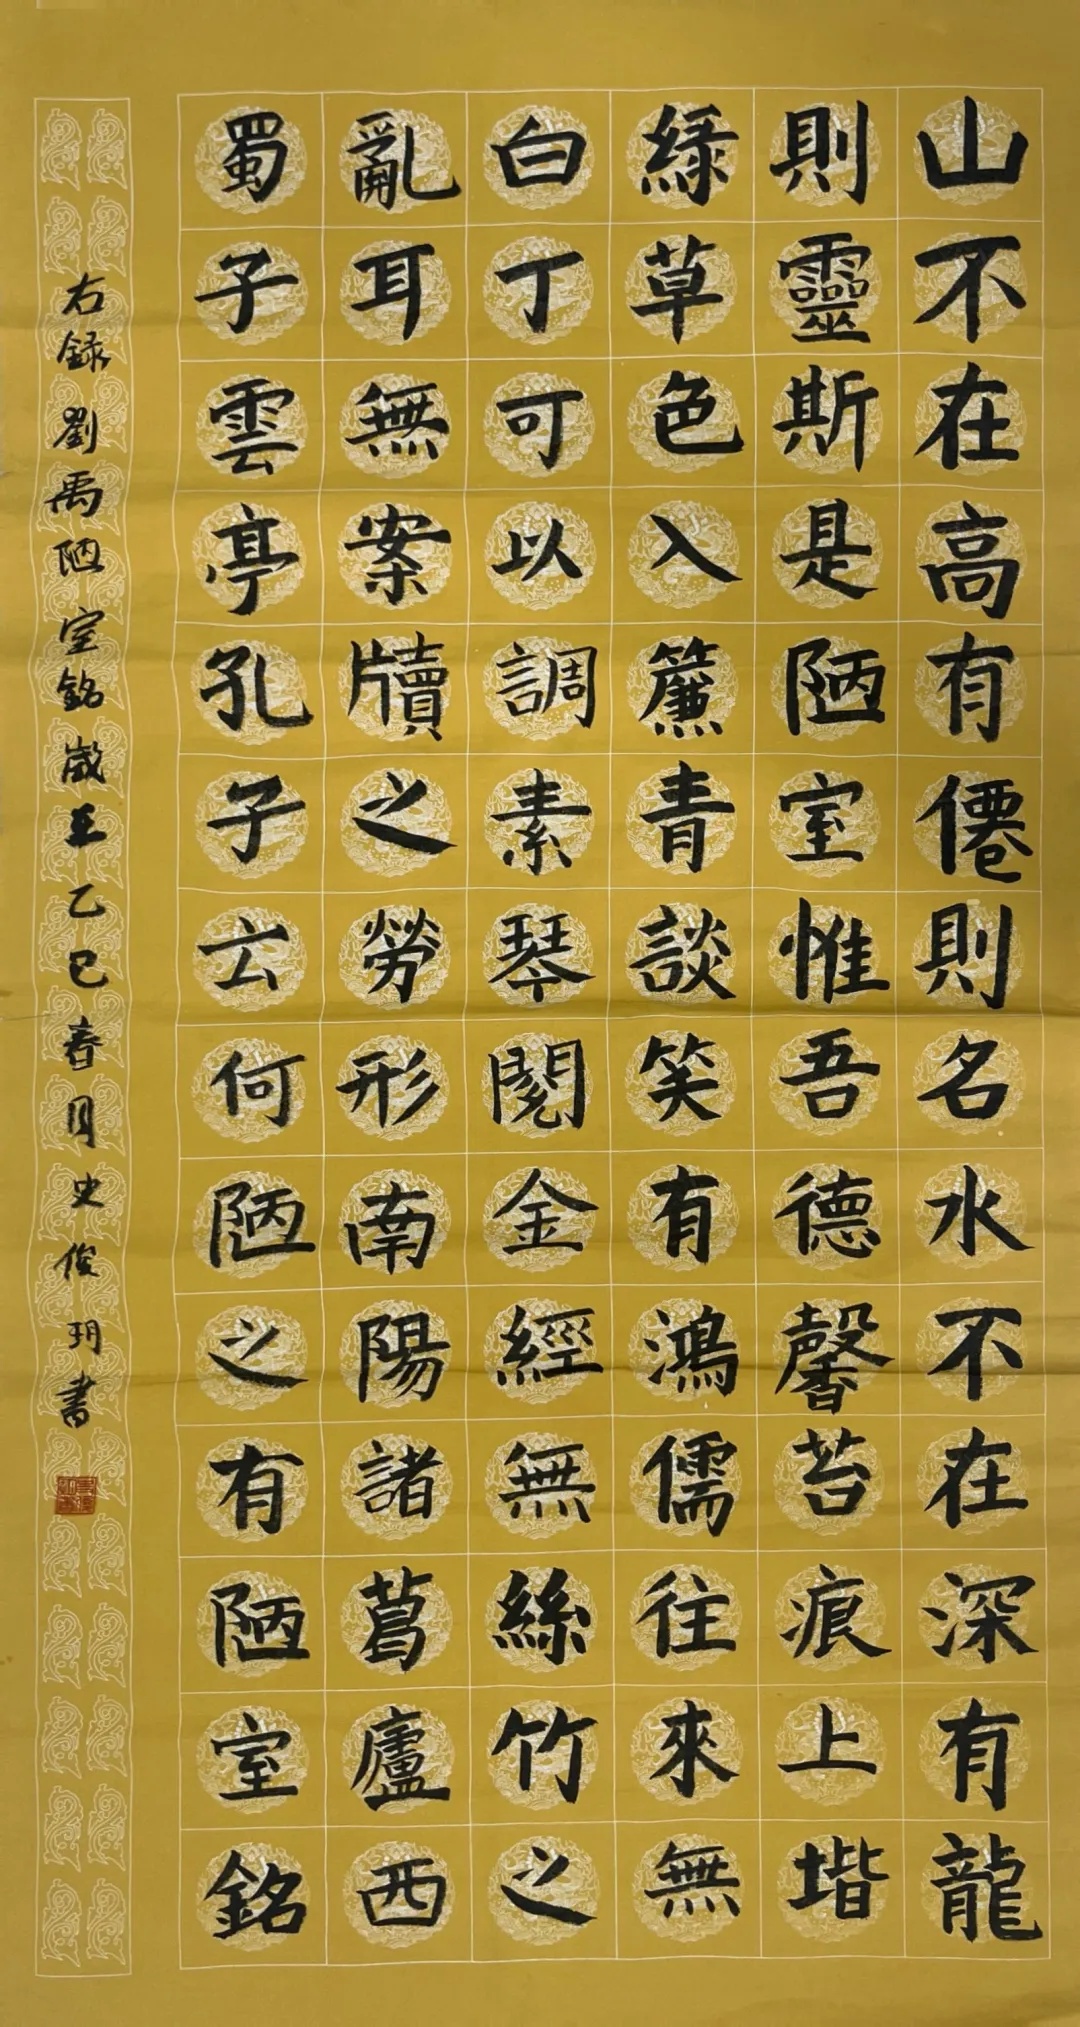 山不在高有僊則名水不在深有龍
則靈斯是陋室惟吾德馨苔痕上堦
綠草色入簾青談笑有鴻儒往來無
白丁可以調素琴閱金經無絲竹之
亂耳無案牘之勞形南陽諸葛廬西
蜀子雲亭孔子云何陋之有陋室銘
右録劉禹陋室銘歲在乙巳春月史俊玥書